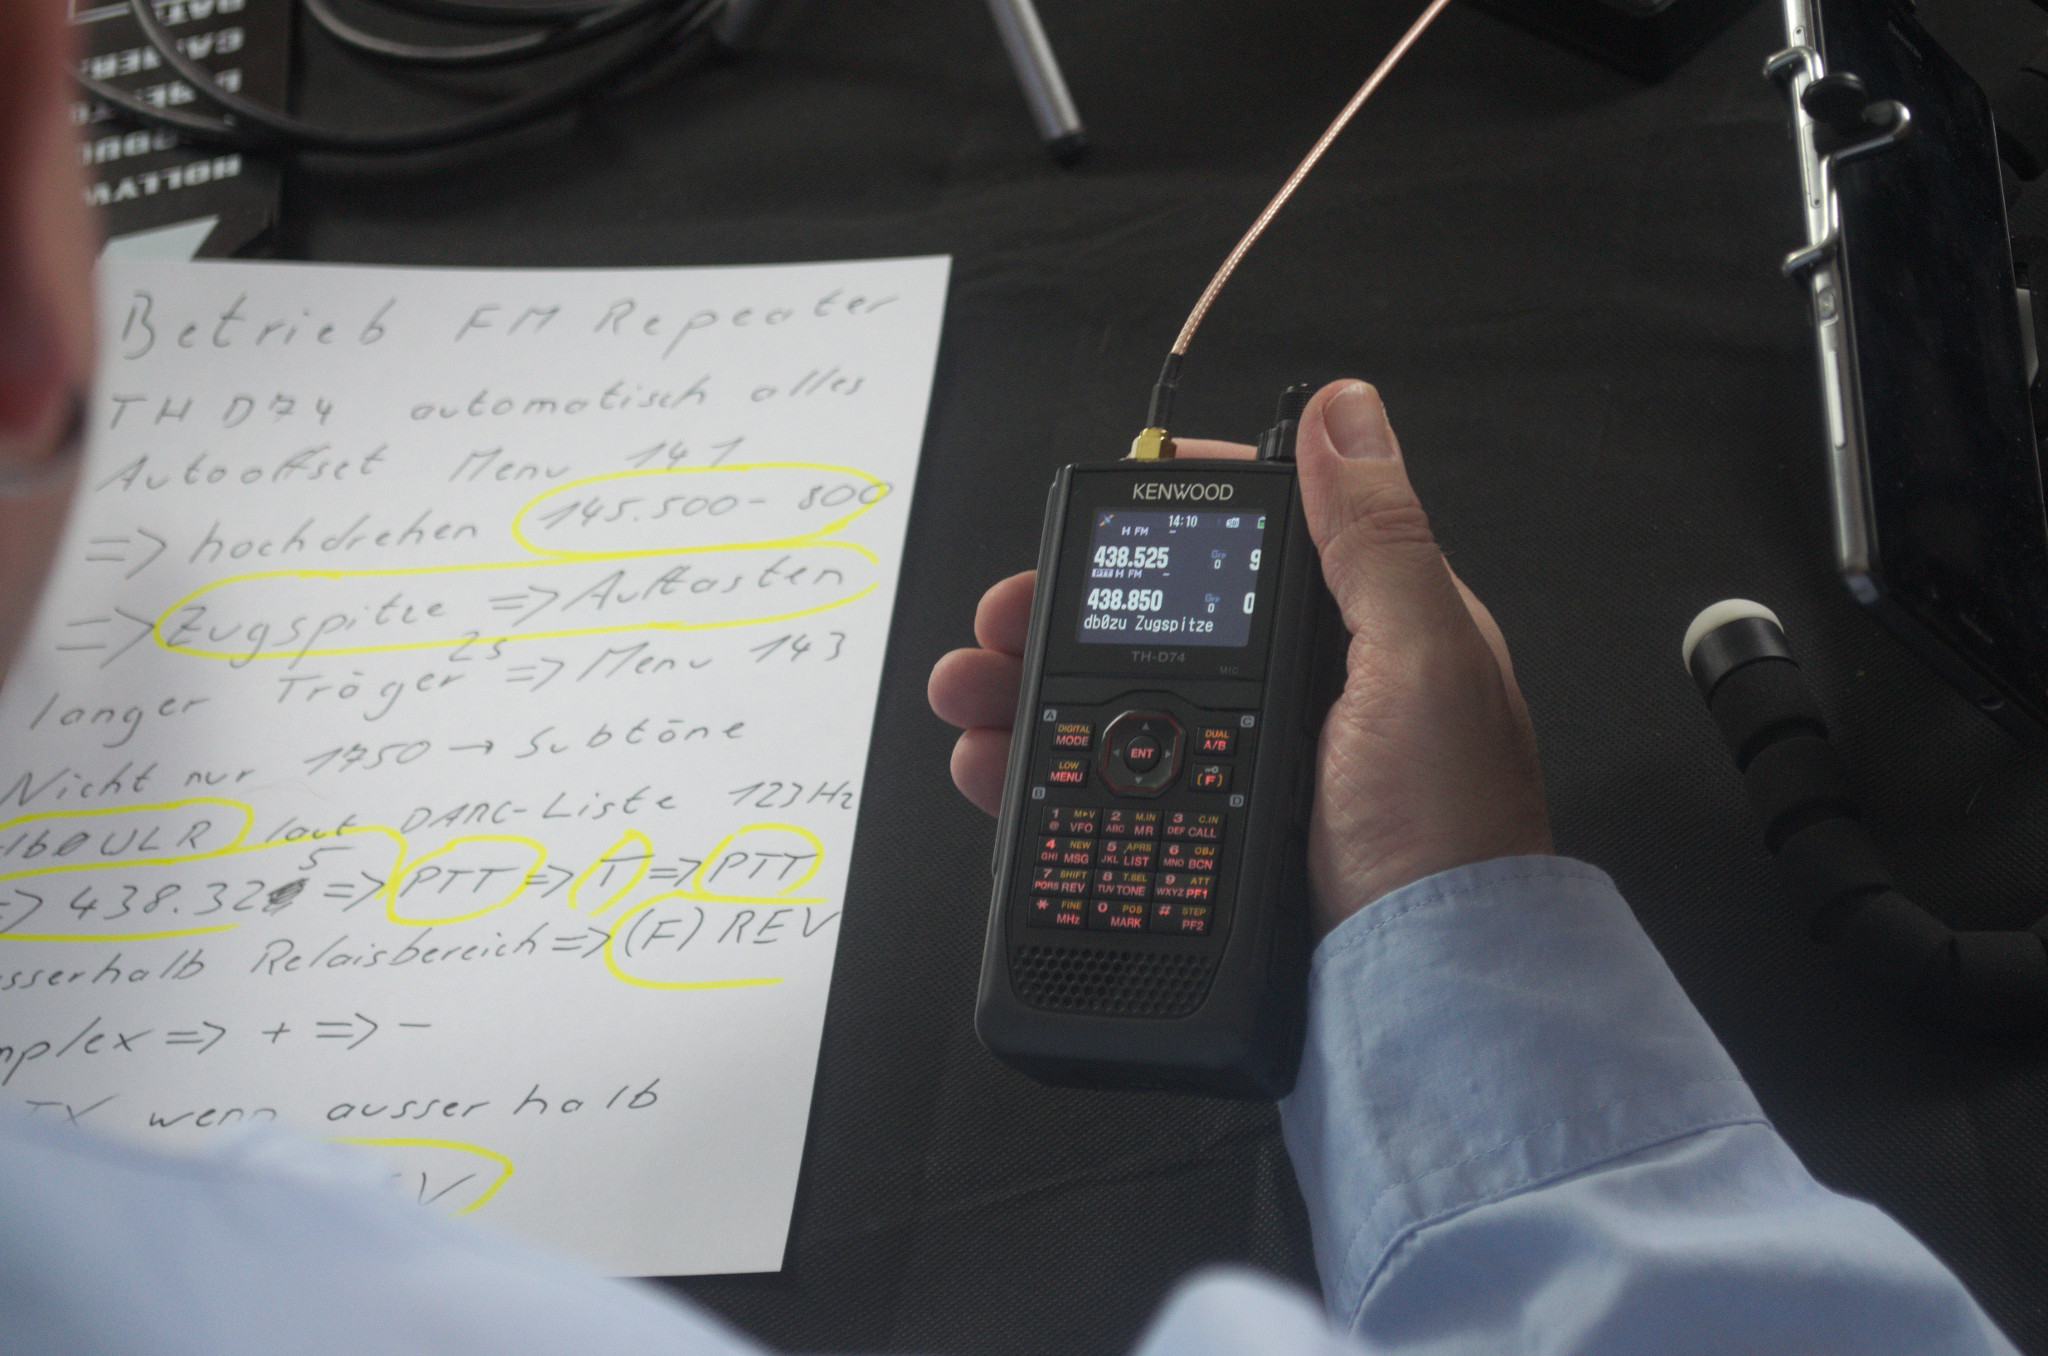 HOLLYW
Betrieb FM Repeater
TH D74 automatisch alles
Autooffset Menu 141
=> hochdrehen 145.500- 800
=> Zugspitze => Auftasten
langer Träger 2s => Menu 143
Nicht nur 1750 → Subtöne
DB0ULR laut DARC-Liste 123Hz
=> 438.325 => PTT => T => PTT
sserhalb Relaisbereich => (F) REV
mplex => + => -
TX wenn ausserhalb
EV
KENWOOD
14:10
H FM -
438.525 Grp 0 9
PTT H FM -
438.850 Grp 0 0
db0zu Zugspitze
TH-D74
MIC
A C
DIGITAL MODE ENT DUAL A/B
LOW MENU (F)
B D
1 @ M▸V VFO 2 ABC M.IN MR 3 DEF C.IN CALL
4 GHI NEW MSG 5 JKL APRS LIST 6 MNO OBJ BCN
7 PQRS SHIFT REV 8 TUV T.SEL TONE 9 WXYZ ATT PF1
* FINE MHz 0 POS MARK # STEP PF2